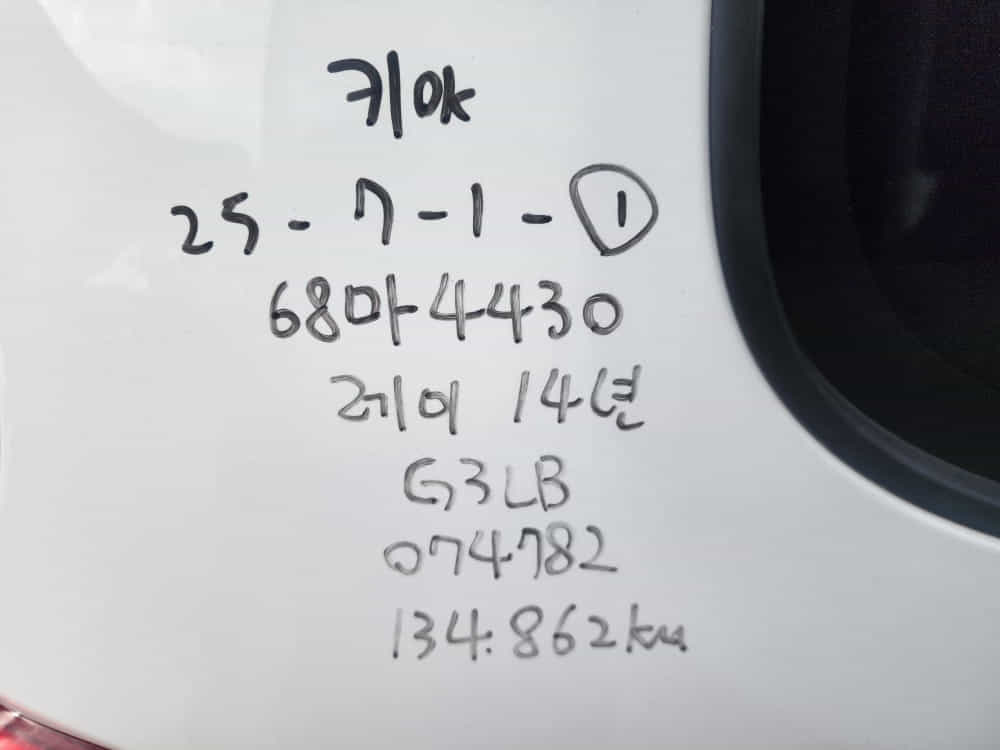 키아
25-7-1-①
68마4430
레이 14년
G3LB
074782
134.862km